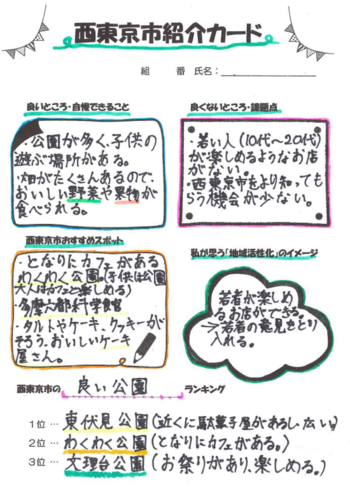 西東京市紹介カード
組　番　氏名：
良いところ・自慢できること
・公園が多く、子供の
遊ぶ場所がある。
・畑がたくさんあるので、
おいしい野菜や果物が
食べられる。
良くないところ・課題点
・若い人(10代〜20代)
が楽しめるようなお店
がない。
・西東京市をより知っても
らう機会が少ない。
西東京市おすすめスポット
・となりにカフェがある
わくわく公園。(子供は公園
大人はカフェと楽しめる)
・多摩六都科学館
・タルトやケーキ、クッキーが
そろう、おいしいケーキ
屋さん。
私が思う「地域活性化」のイメージ
若者が楽しめ
るお店ができる。
→若者の意見をとり
入れる。
西東京市の 良い公園 ランキング
1位 … 東伏見公園(近くに駄菓子屋があるし、広い。)
2位 … わくわく公園(となりにカフェがある。)
3位 … 文理台公園(お祭りがあり、楽しめる。)